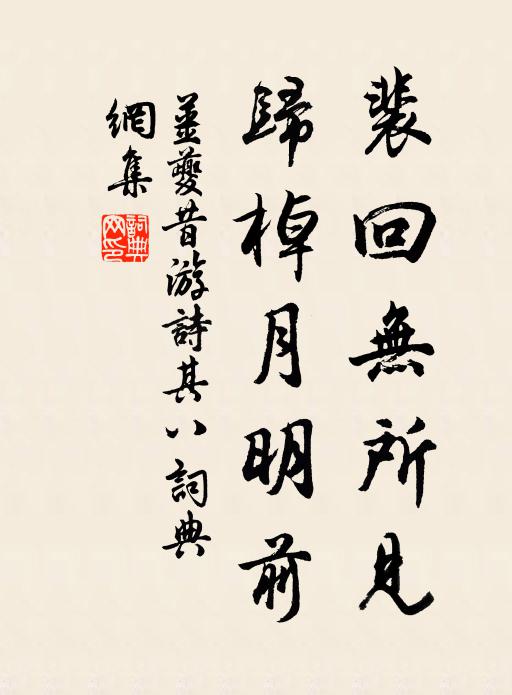 裴回無所見
歸棹月明前
姜夔昔游詩其八詞典
網集
詞典網印